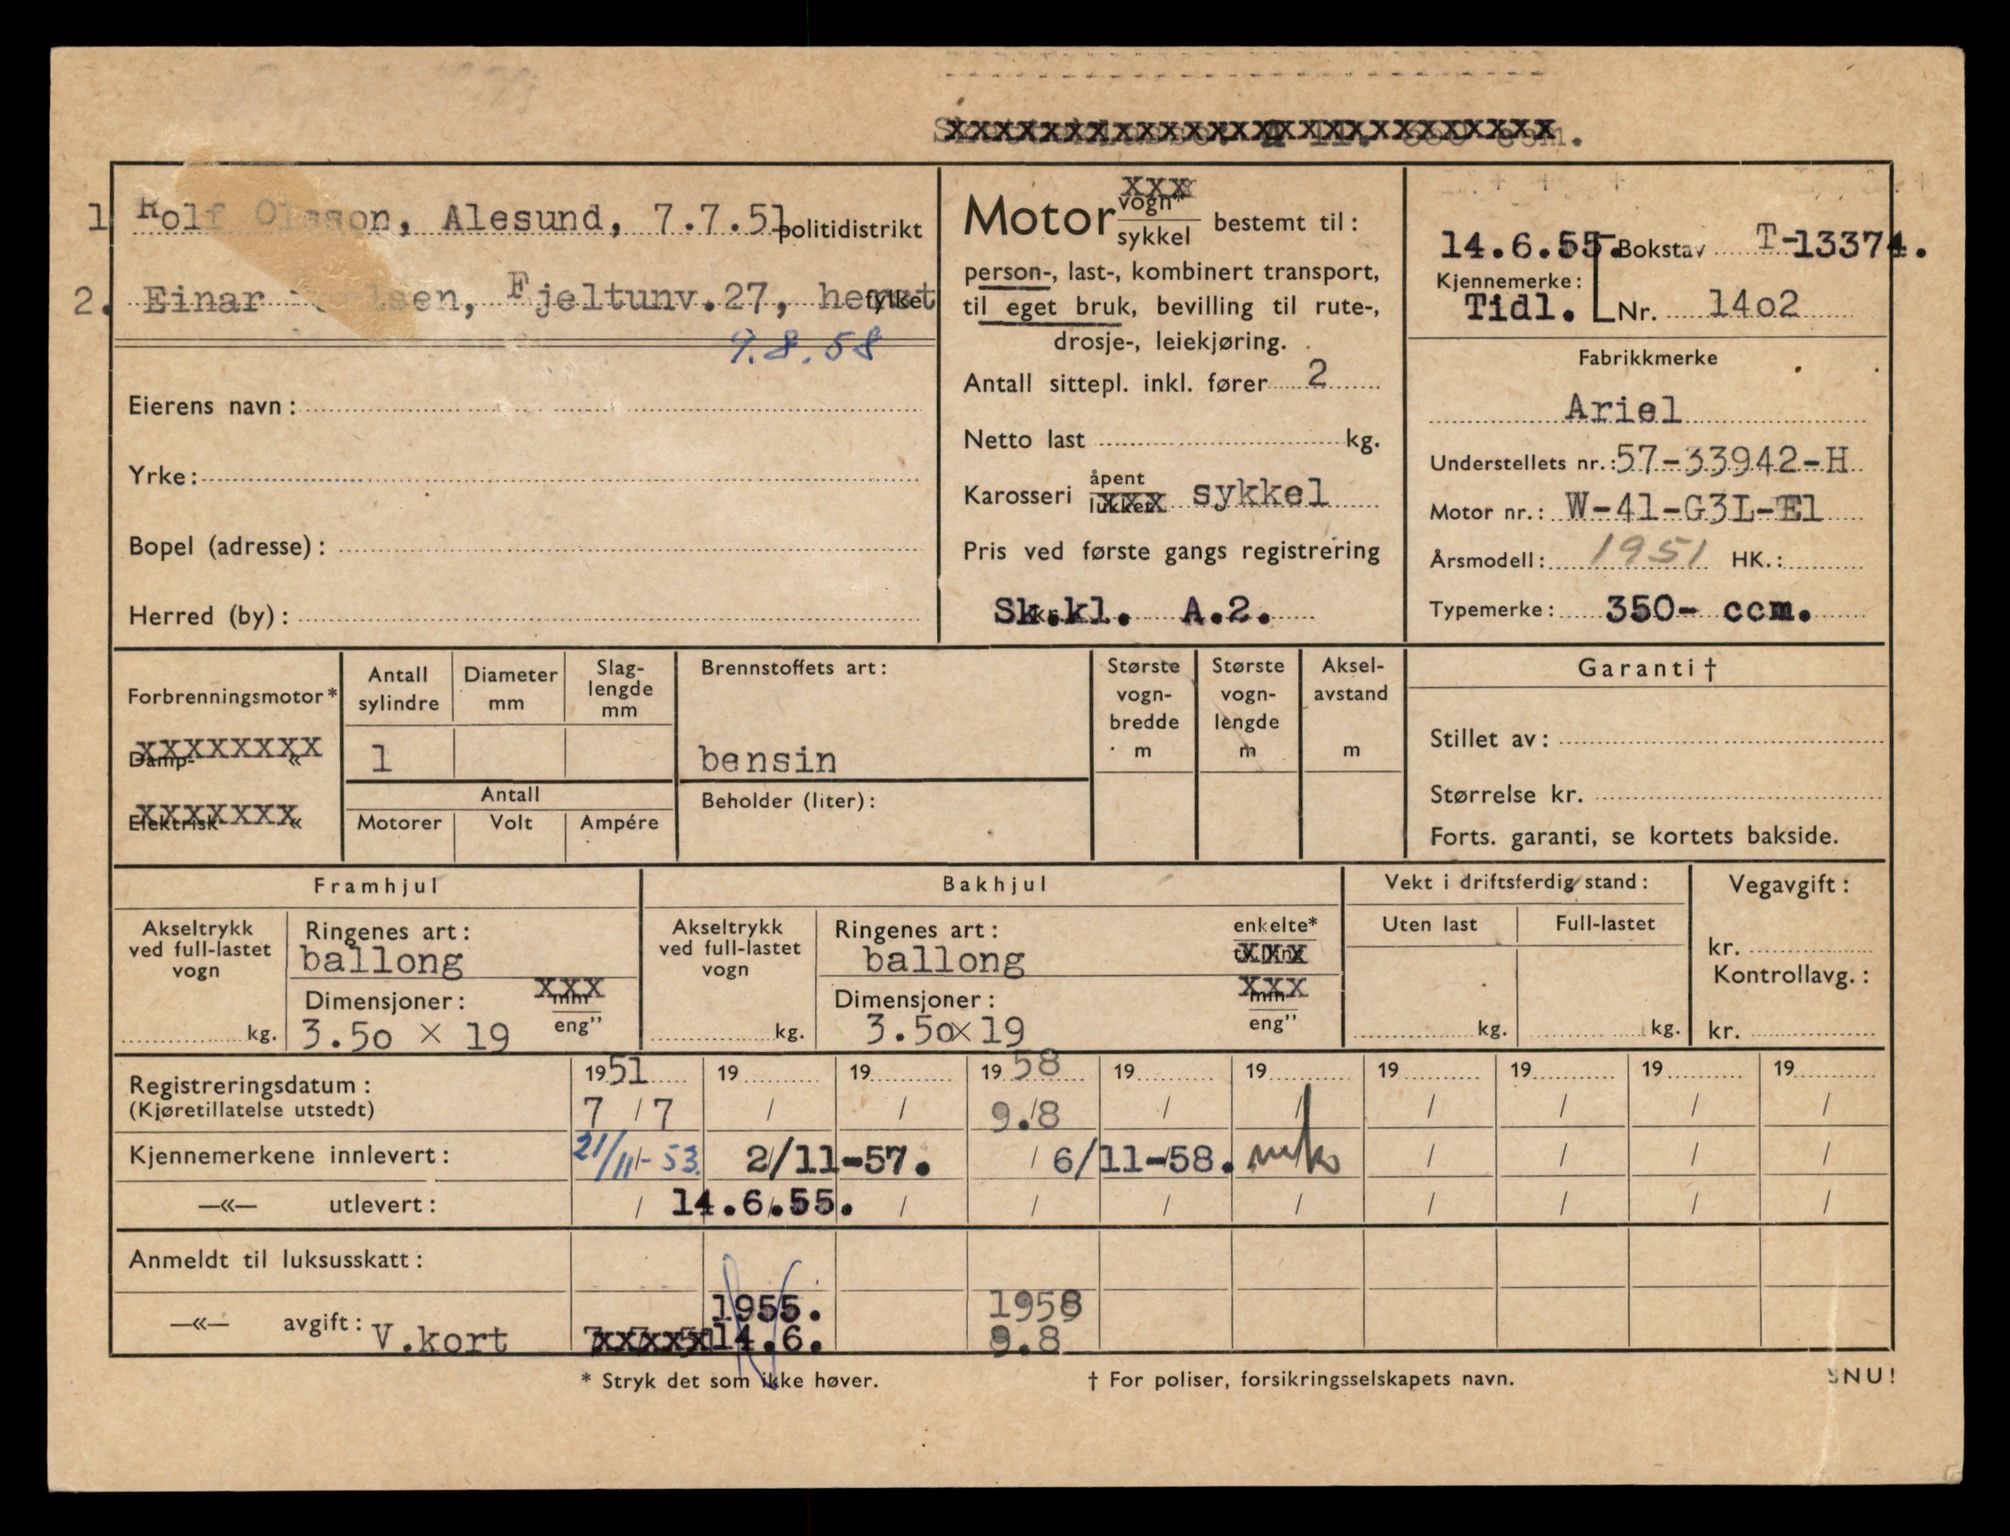 1 Rolf Olsson, Alesund, 7.7.51 politidistrikt
2. Einar fjeltunv.27, herst fylke
9.8.58
Eierens navn:
Yrke:
Bopel (adresse):
Herred (by):
Motor vogn* sykkel bestemt til:
person-, last-, kombinert transport,
til eget bruk, bevilling til rute-,
drosje-, leiekjøring.
Antall sittepl. inkl. fører 2
Netto last kg.
Karosseri åpent lukket xxx sykkel
Pris ved første gangs registrering
Sk.kl. A.2.
14.6.55. Bokstav T-13374.
Kjennemerke:
Tidl. Nr. 14o2
Fabrikkmerke
Ariel
Understellets nr.: 57-33942-H
Motor nr.: W-41-G3L-E1
Årsmodell: 1951 HK.:
Typemerke: 350- ccm.
Forbrenningsmotor*
Damp- «
Elektrisk «
Antall sylindre
1
Diameter mm
Slag-lengde mm
Antall
Motorer Volt Ampére
Brennstoffets art:
bensin
Beholder (liter):
Største vogn-bredde m
Største vogn-lengde m
Aksel-avstand m
Garanti †
Stillet av:
Størrelse kr.
Forts. garanti, se kortets bakside.
Framhjul
Akseltrykk ved full-lastet vogn
kg.
Ringenes art:
ballong
Dimensjoner: mm eng”
3.5o x 19
Bakhjul
Akseltrykk ved full-lastet vogn
kg.
Ringenes art: enkelte*
ballong
Dimensjoner: mm eng”
3.5o x 19
Vekt i driftsferdig stand:
Uten last Full-lastet
kg. kg.
Vegavgift:
kr.
Kontrollavg.:
kr.
Registreringsdatum: 1951 19 19 1958 19 19 19 19 19 19
(Kjøretillatelse utstedt) 7 / 7 / / 9.8 / / / / / /
Kjennemerkene innlevert: 21/11-53. 2/11-57. / 6/11-58. / / / /
—«— utlevert: / 14.6.55. / / / / / / / /
Anmeldt til luksusskatt:
1955. 1958
—«— avgift: V.kort 14.6. 9.8
* Stryk det som ikke høver.
† For poliser, forsikringsselskapets navn.
SNU!